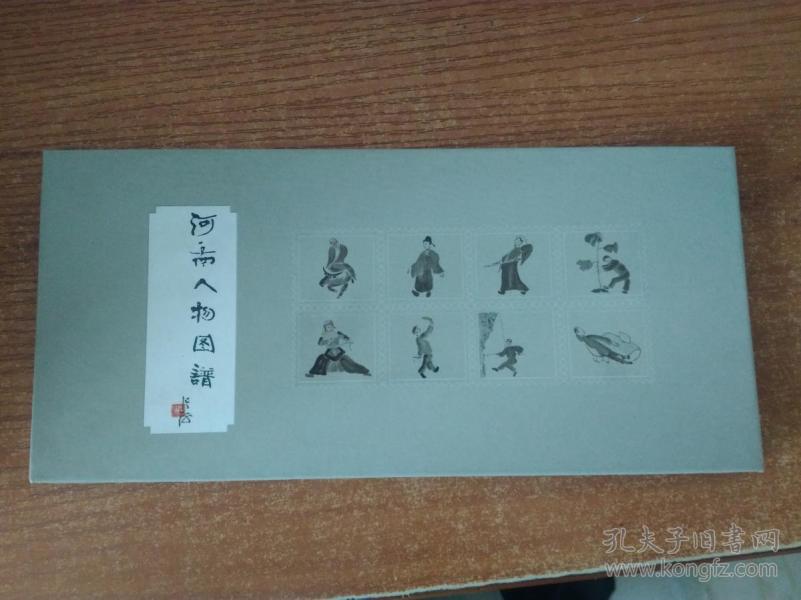 河南人物图譜
孔夫子旧书网
www.kongfz.com